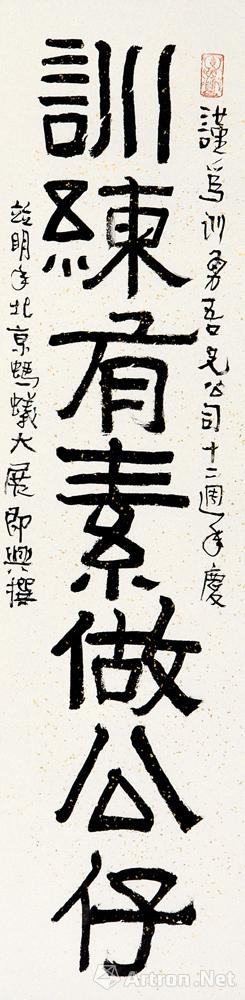 謹為訓勇吾兄公司十二週年慶
訓練有素做公仔
並明年北京螞蟻大展即興撰
Artron.Net